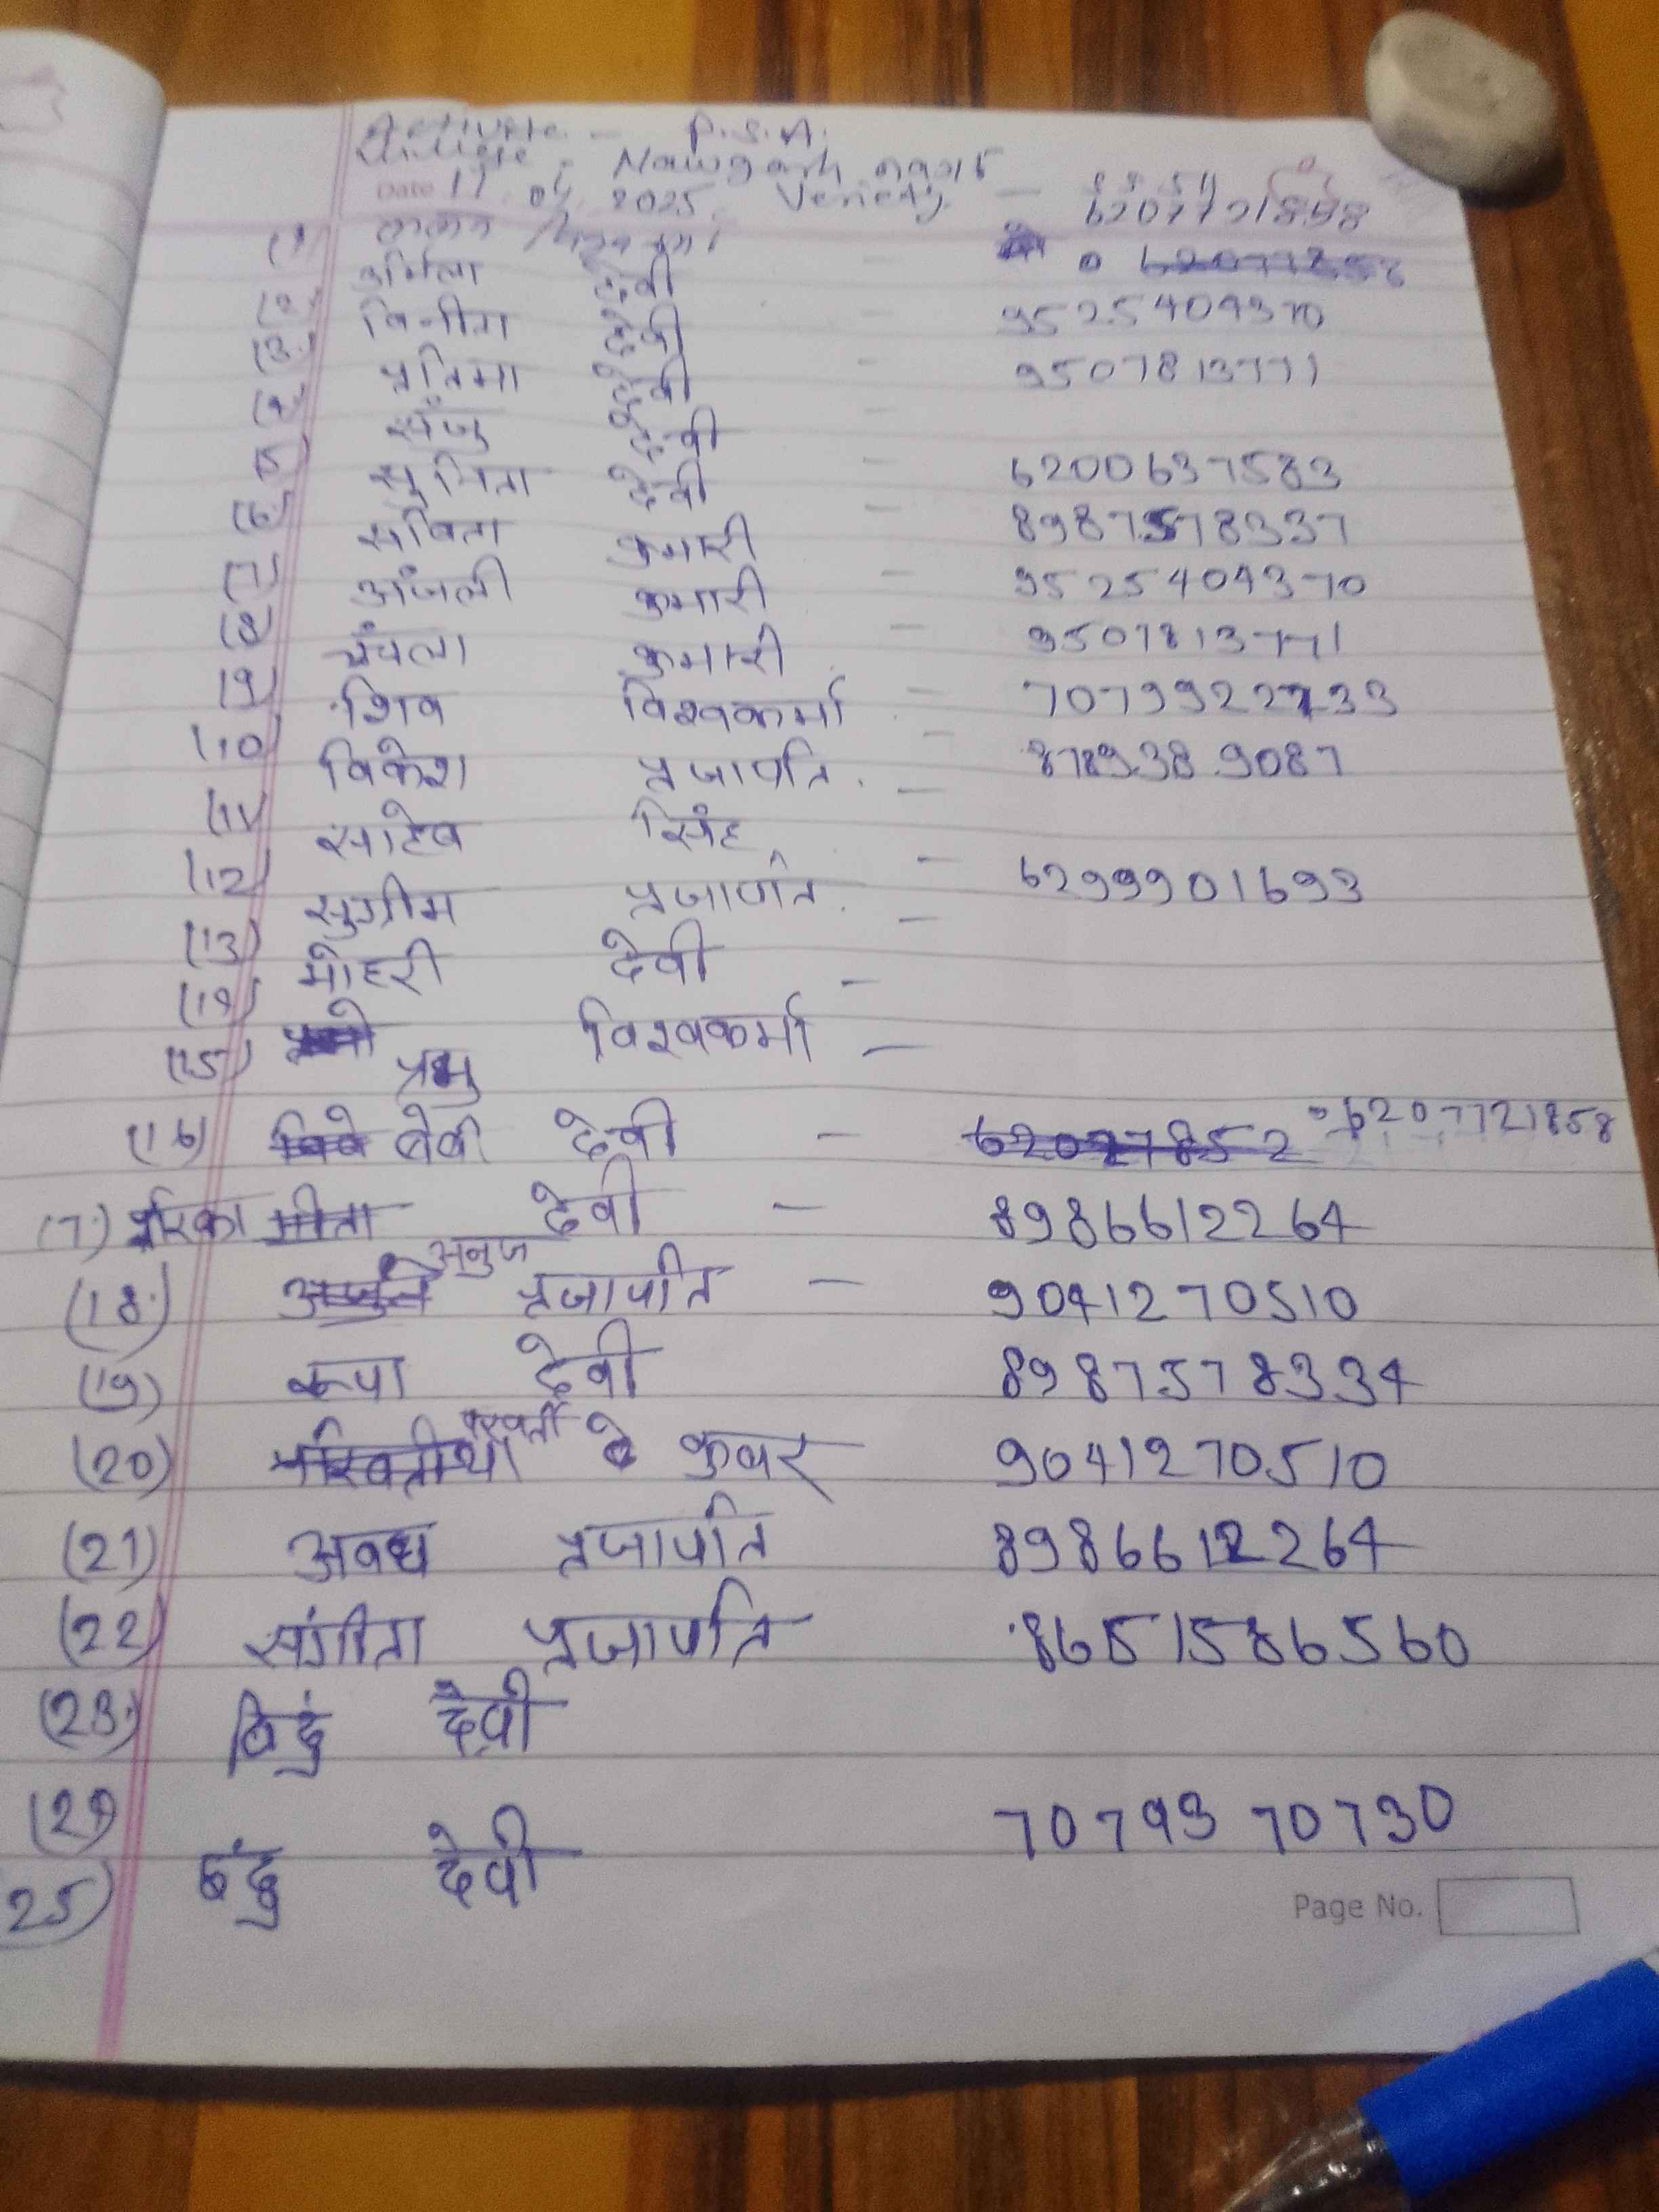 Activite - P.S.A.
Village - Nawgarh
Date 11 04 2025 Veriety -
(1) ललन विश्वकर्मा 6207721858
(2) उर्मिला देवी -
(3) विनीता देवी - 9525404370
(4) प्रतिमा देवी - 9507813771
(5) संजु देवी -
(6) सुमिता देवी - 6200637583
(7) सबिता कुमारी - 8987578337
(8) अंजली कुमारी - 9525404370
(9) चंचला कुमारी - 9507813771
(10) शिव विश्वकर्मा - 7079922733
(11) विकेश प्रजापति. - 8789389087
(12) साहेब सिंह -
(13) सुग्रीम प्रजापति. - 6299901693
(14) मोहरी देवी -
(15) प्रभु विश्वकर्मा -
(16) बेबी देवी - 6207721858
(17) देवी - 8986612264
(18) अनुज प्रजापति - 9041270510
(19) रूपा देवी 8987578334
(20) कुवर 9041270510
(21) अवध प्रजापति 8986612264
(22) संगीता प्रजापति 8651586560
(23) बिंदु देवी
(24) 7079370730
(25) इंदु देवी
Page No.